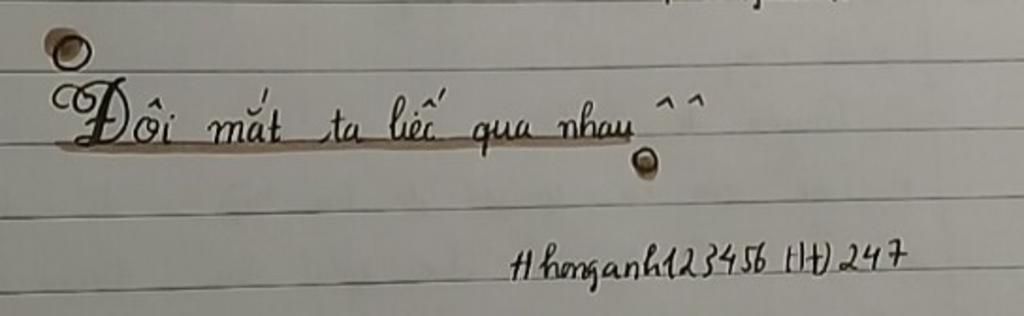 Đôi mắt ta liếc qua nhau ^ ^
#honganh123456 (lt) 247